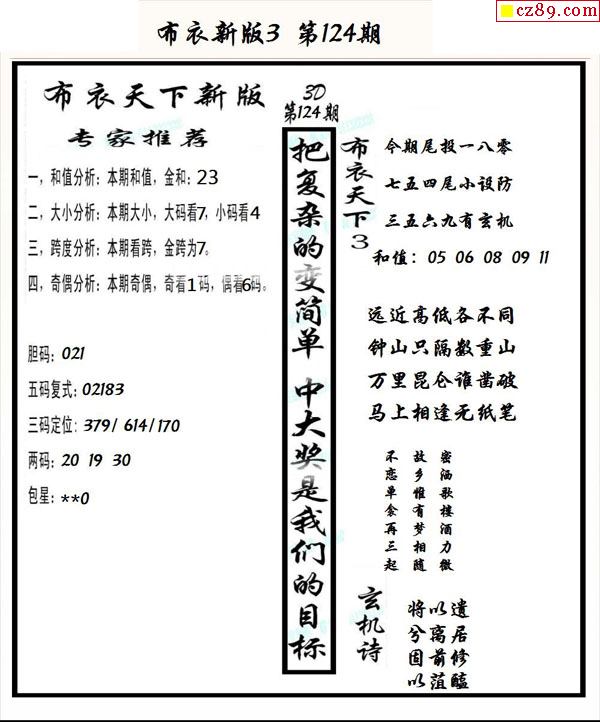 cz89.com
布衣新版3 第124期
布衣天下新版
专家推荐
一，和值分析：本期和值，金和：23
二，大小分析：本期大小，大码看7，小码看4
三，跨度分析：本期看跨，金跨为7。
四，奇偶分析：本期奇偶，奇看1码，偶看6码。
胆码：021
五码复式：02183
三码定位：379/ 614/170
两码：20 19 30
包星：**0
3D
第124期
把复杂的变简单 中大奖是我们的目标
布衣天下3
今期尾投一八零
七五四尾小设防
三五六九有玄机
和值：05 06 08 09 11
远近高低各不同
钟山只隔数重山
万里昆仑谁凿破
马上相逢无纸笔
不 故 密
恋 乡 洒
单 惟 歌
余 有 楼
再 梦 酒
三 相 力
起 随 微
玄机诗
将以遗
兮离居
固前修
以菹醢